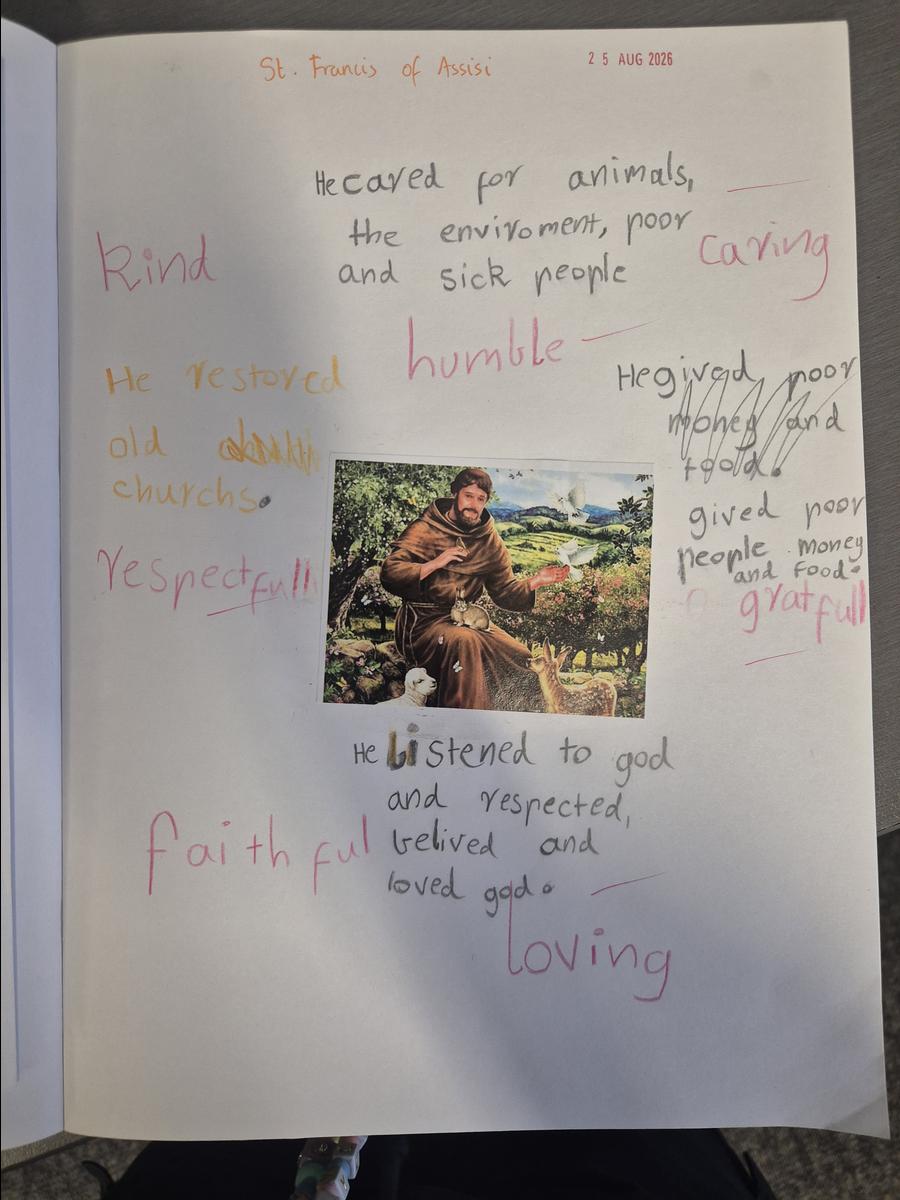 St. Francis of Assisi
25 AUG 2026
He cared for animals,
the enviroment, poor
and sick people
kind
caring
humble
He restored
old
churchs.
He gived poor
money and
food.
gived poor
people money
and food.
respectfull
gratfull
He listened to god
and respected,
belived and
loved god.
faithful
loving